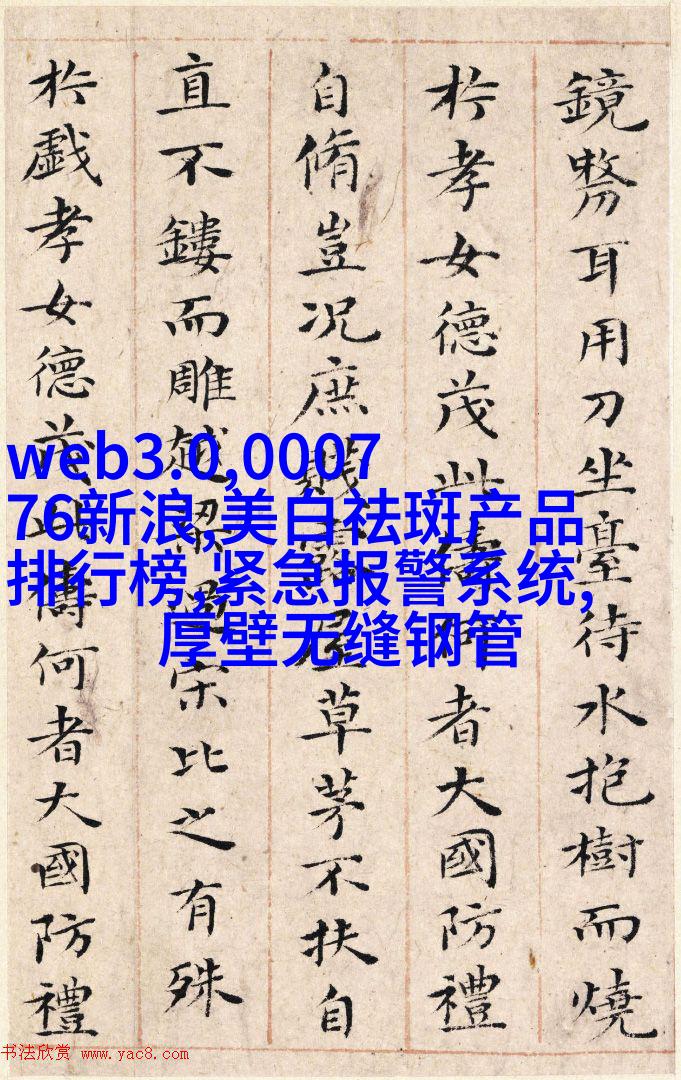 鏡剺耳用刀坐臺待水抱樹而燒
扵孝女德茂此儔何者大國防禮
自脩豈况庶賤露屋草茅不扶自
直不鏤而雕越梁過宋比之有殊
扵戯孝女德茂此儔何者大國防禮
web3.0,0007
76新浪,美白祛斑产品
排行榜,紧急报警系统,
厚壁无缝钢管
书法欣赏 www.yac8.com